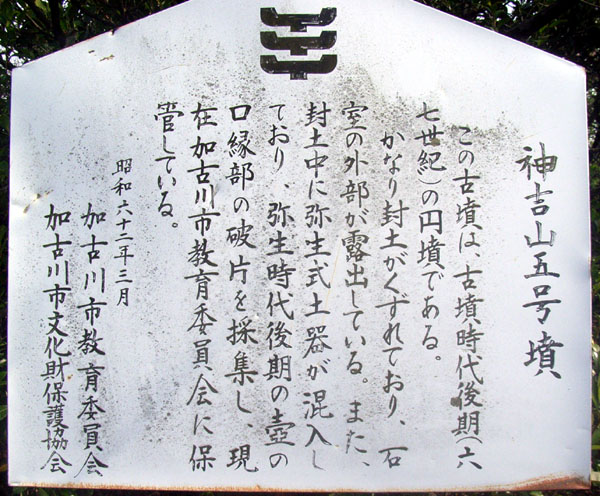 神吉山五号墳
この古墳は、古墳時代後期(六
七世紀)の円墳である。
かなり封土がくずれており、石
室の外部が露出している。また、
封土中に弥生式土器が混入し
ており、弥生時代後期の壺の
口縁部の破片を採集し、現
在加古川市教育委員会に保
管している。
昭和六十二年三月
加古川市教育委員会
加古川市文化財保護協会